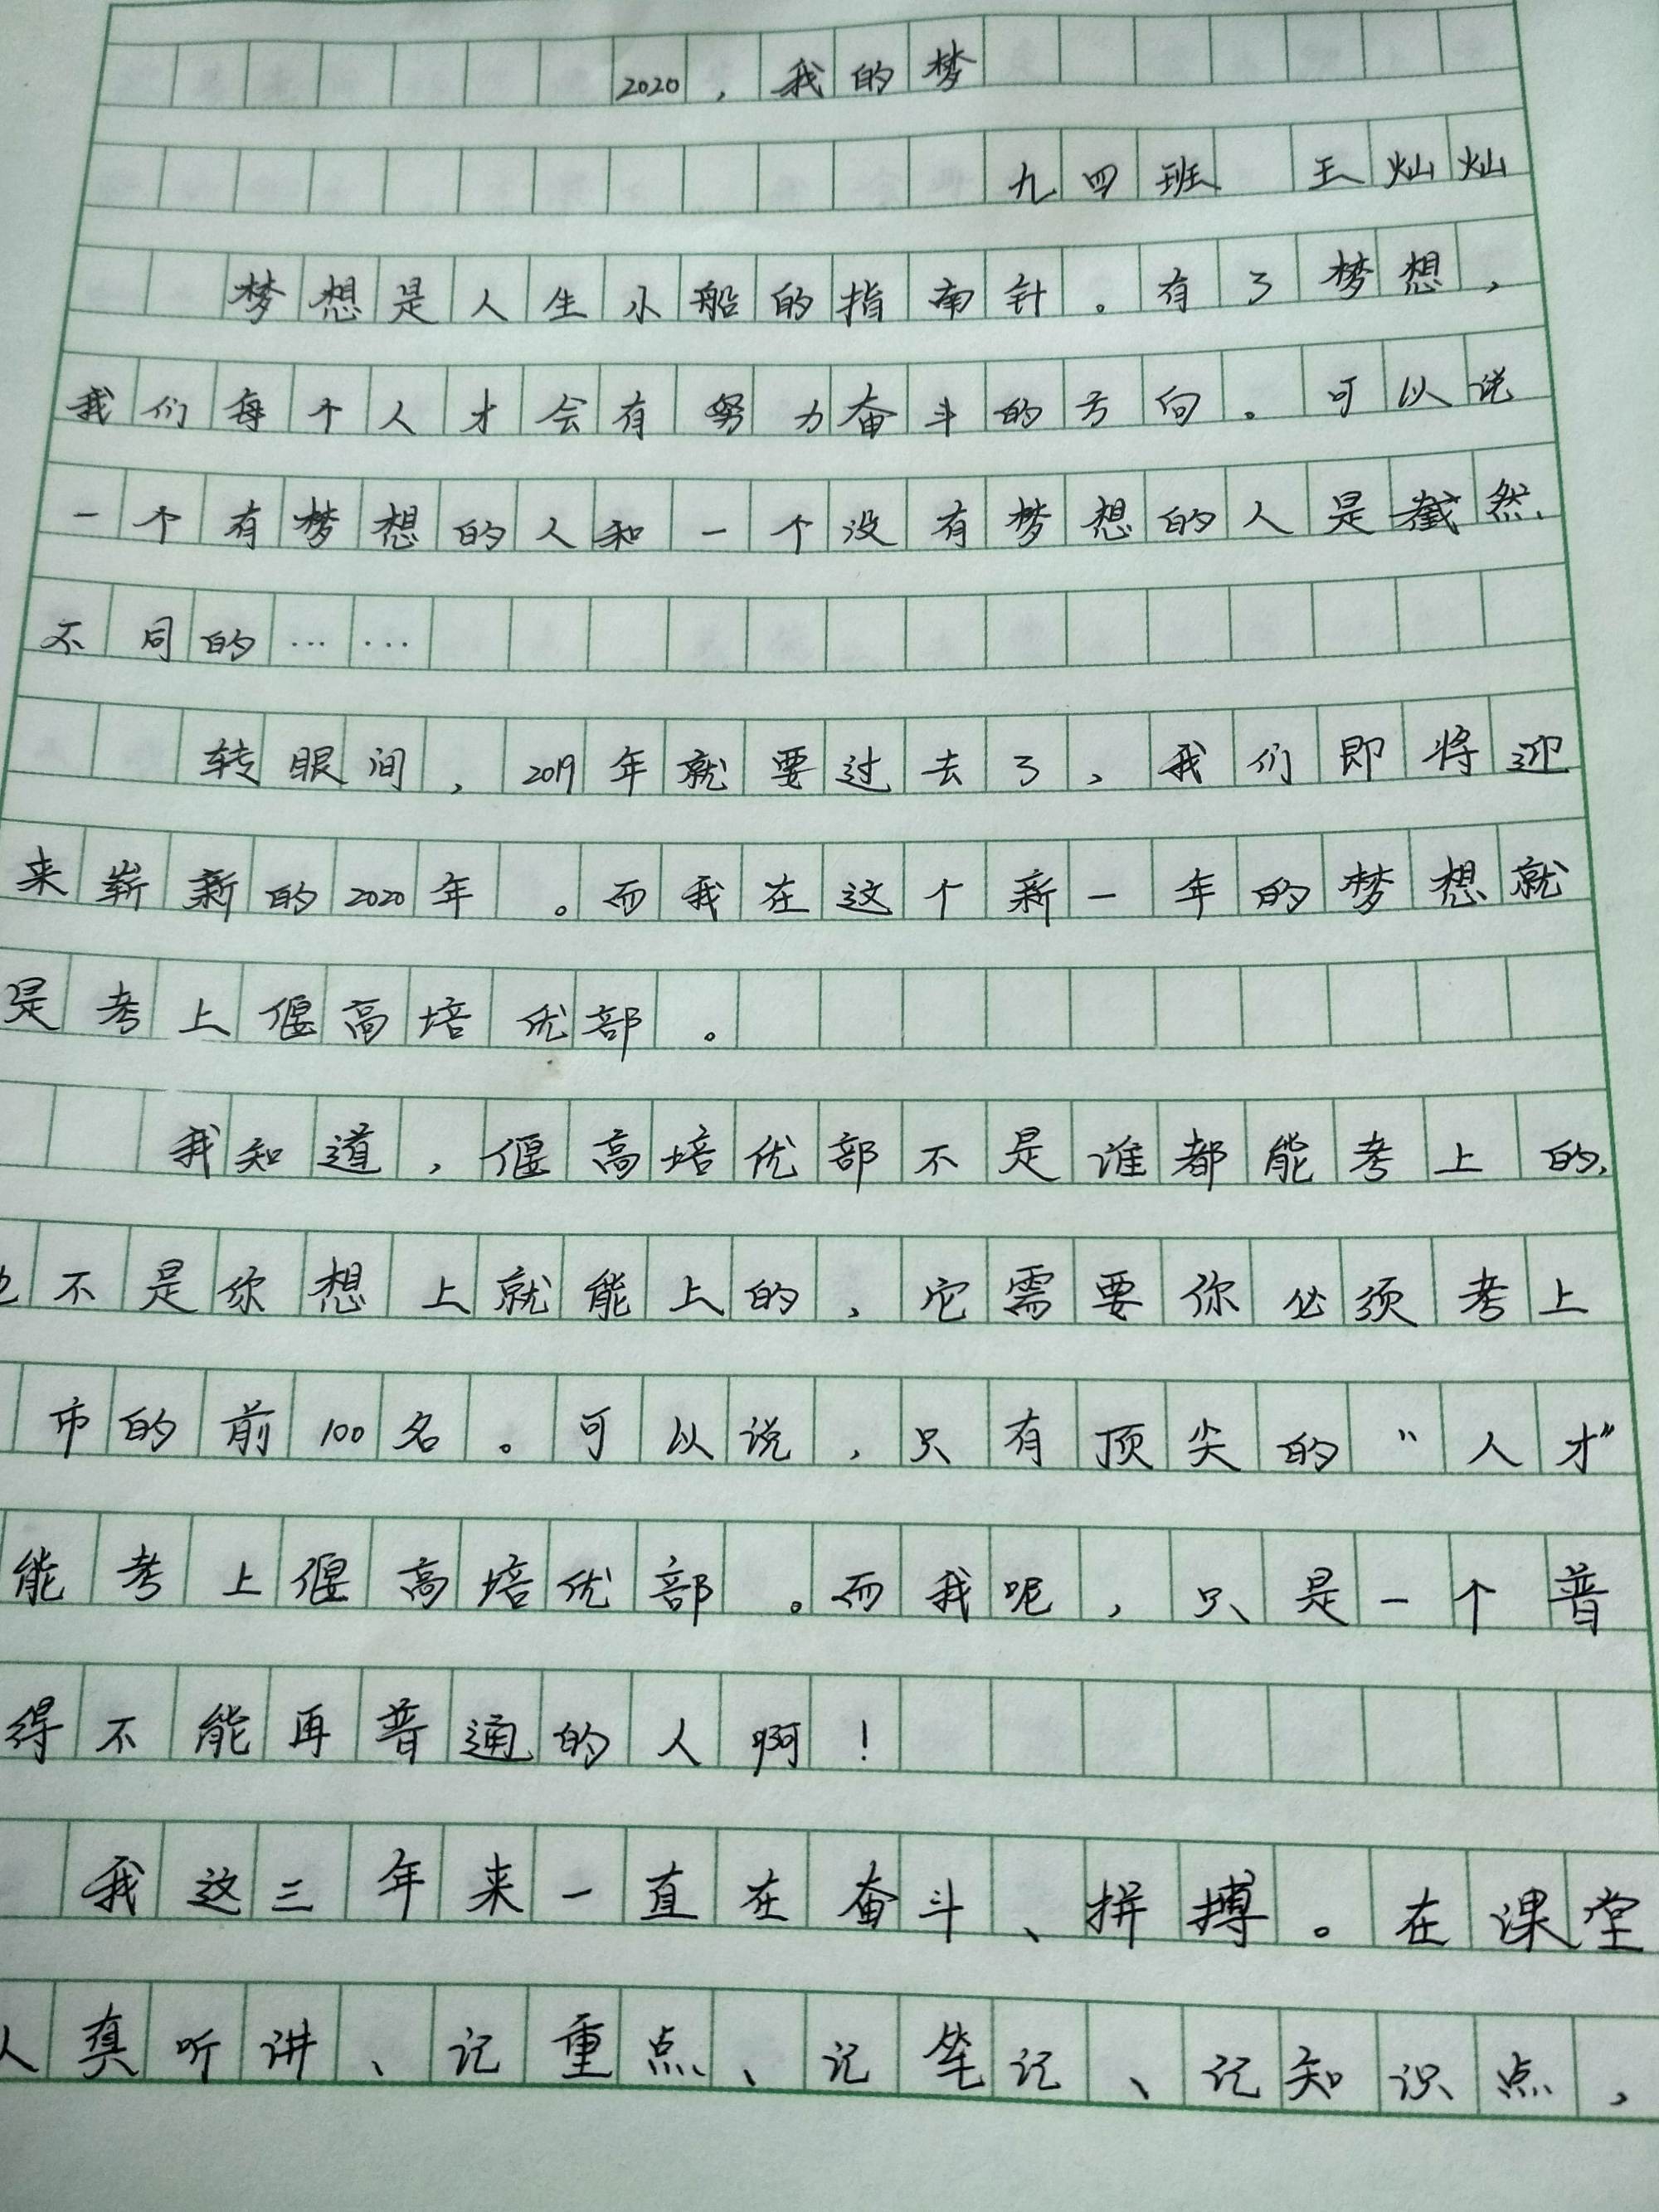 2020，我的梦
九四班 王灿灿
梦想是人生小船的指南针。有了梦想，
我们每个人才会有努力奋斗的方向。可以说
一个有梦想的人和一个没有梦想的人是截然
不同的……
转眼间，2019年就要过去了，我们即将迎
来崭新的2020年。而我在这个新一年的梦想就
是考上偃高培优部。
我知道，偃高培优部不是谁都能考上的，
也不是你想上就能上的，它需要你必须考上
市的前100名。可以说，只有顶尖的“人才”
能考上偃高培优部。而我呢，只是一个普
得不能再普通的人啊！
我这三年来一直在奋斗、拼搏。在课堂
认真听讲、记重点、记笔记、记知识点，